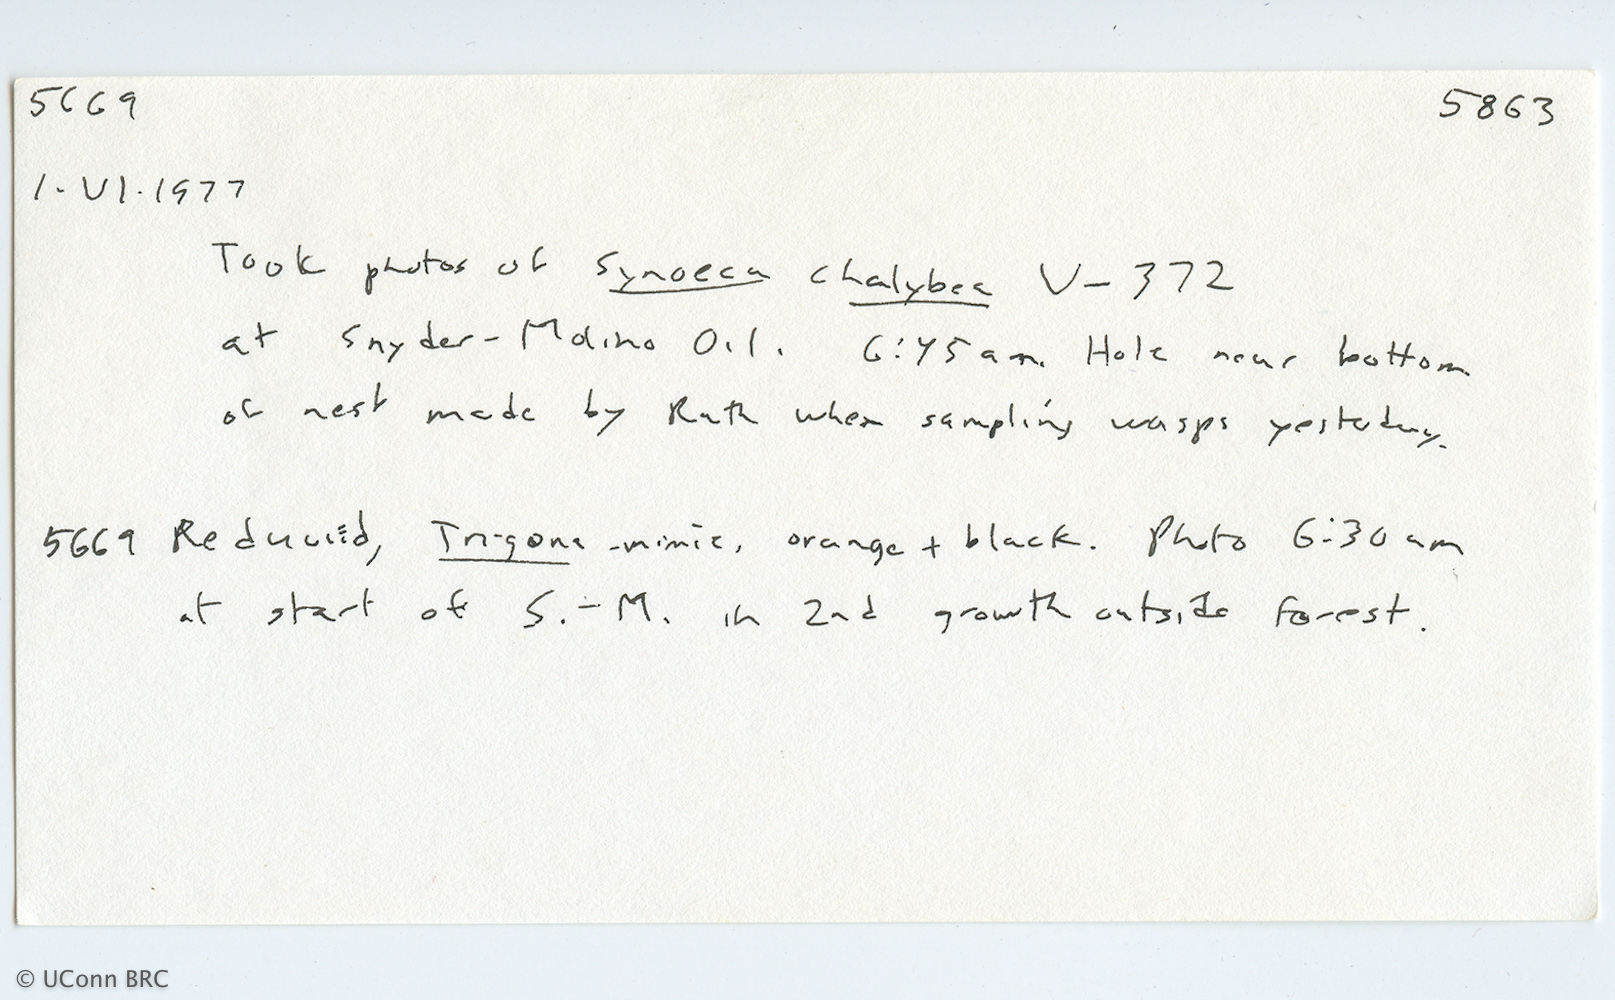 5669 5863
1-VI-1977
Took photos of Synoeca chalybea V-372
at Snyder-Molino Oil. 6:45 am. Hole near bottom
of nest made by Ruth when sampling wasps yesterday.
5669 Reduviid, Trigona-mimic, orange + black. Photo 6:30 am
at start of S.-M. in 2nd growth outside forest.
© UConn BRC